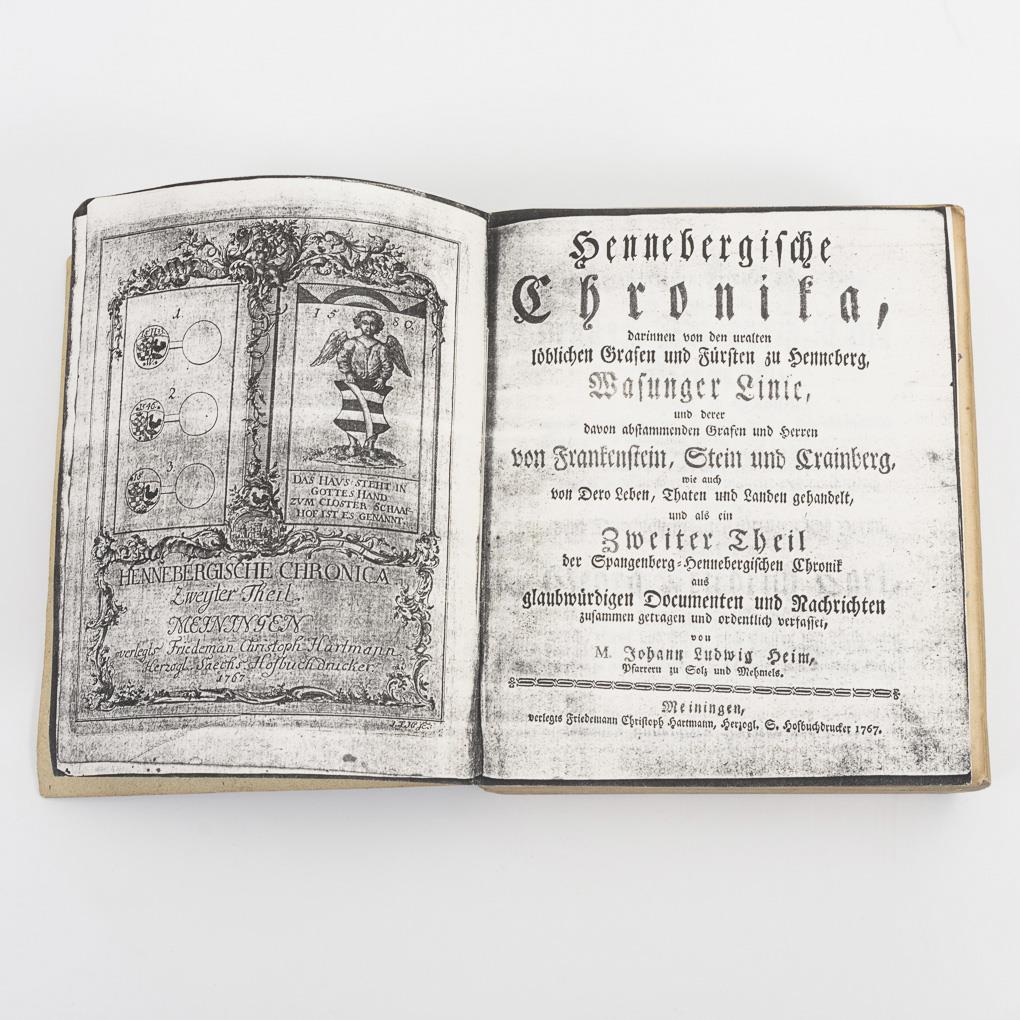 1.
2.
1546.
3.
15 89.
DAS HAVS STEHT IN
GOTTES HAND
ZVM CLOSTER SCHAAF-
HOF IST ES GENANNT.
HENNEBERGISCHE CHRONICA
Zweyter Theil.
MEININGEN
verlegts Friedeman Christoph Hartmann
Herzogl. Saechs. Hofbuchdrucker.
1767.
Hennebergiſche
Chronika,
darinnen von den uralten
löblichen Grafen und Fürſten zu Henneberg,
Waſunger Linie,
und derer
davon abſtammenden Grafen und Herren
von Frankenſtein, Stein und Crainberg,
wie auch
von Dero Leben, Thaten und Landen gehandelt,
und als ein
Zweiter Theil
der Spangenberg-Hennebergiſchen Chronik
aus
glaubwürdigen Documenten und Nachrichten
zuſammen getragen und ordentlich verfaſſet,
von
M. Johann Ludwig Heim,
Pfarrern zu Solz und Mehmels.
Meiningen,
verlegts Friedemann Chriſtoph Hartmann, Herzogl. S. Hofbuchdrucker 1767.